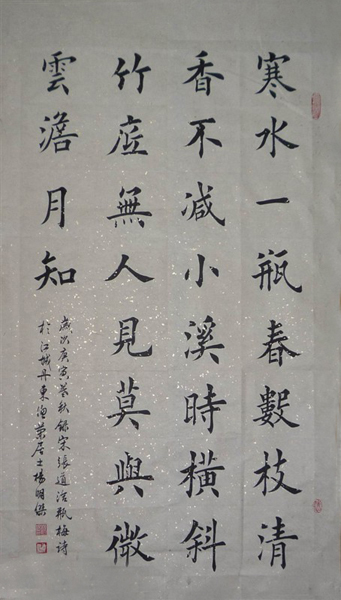 寒水一瓶春數枝清
香不减小溪時橫斜
竹底無人見莫與微
雲澹月知
歲次庚寅秋錄宋張道洽瓶梅詩
於江城丹東居士楊明傑